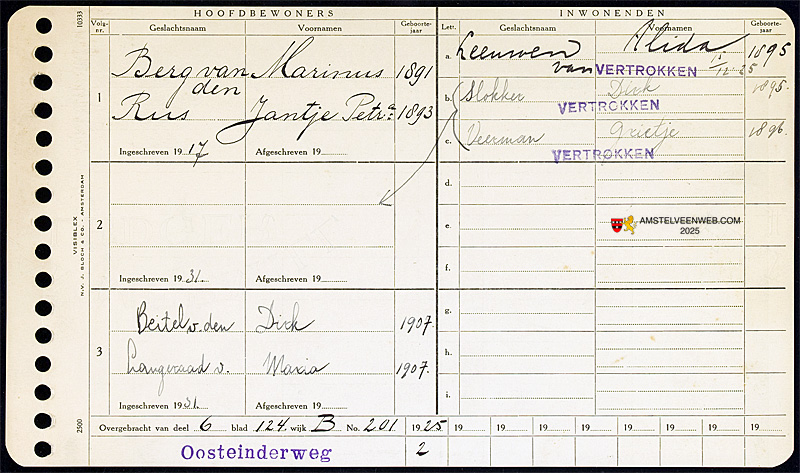 HOOFDBEWONERS INWONENDEN
Volg-nr. Geslachtsnaam Voornamen Geboorte-jaar Lett. Geslachtsnaam Voornamen Geboorte-jaar
10333
1 Berg van den Marinus 1891
Rus Jantje Petra. 1893
Ingeschreven 19 17 Afgeschreven 19
a. Leeuwen van Alida 1895
VERTROKKEN 11/12 25
b. Slokker Dirk 1895.
VERTROKKEN
c. Veerman Grietje 1896.
VERTROKKEN
2
Ingeschreven 19 31. Afgeschreven 19
d.
e.
f.
AMSTELVEENWEB.COM
2025
3 Beitel v. den Dirk 1907.
Langeraad v. Maria 1907.
Ingeschreven 19 31. Afgeschreven 19
g.
h.
i.
Overgebracht van deel 6 blad 124. wijk B No. 201 1925 19 19 19 19 19 19 19 19
Oosteinderweg 2
VISIBLEX
N.V. J. BLOCH & CO. - AMSTERDAM
2500